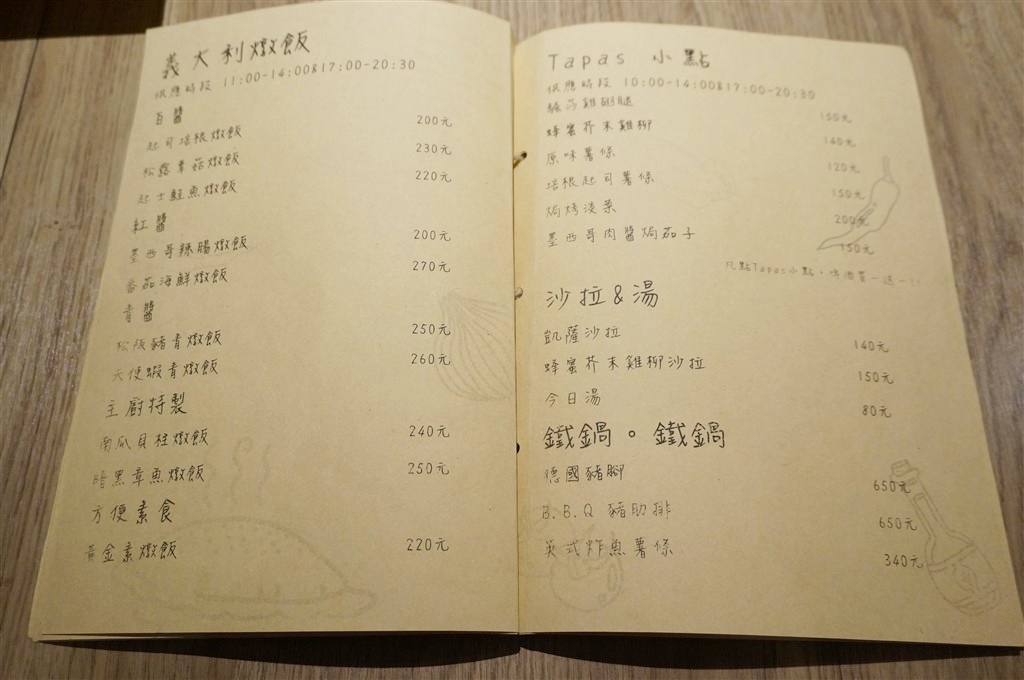 義大利燉飯
供應時段 11:00-14:00&17:00-20:30
白醬
起司培根燉飯 200元
松露草菇燉飯 230元
起士鮭魚燉飯 220元
紅醬
墨西哥辣腸燉飯 200元
番茄海鮮燉飯 270元
青醬
松阪豬青燉飯 250元
天使蝦青燉飯 260元
主廚特製
南瓜貝柱燉飯 240元
暗黑章魚燉飯 250元
方便素食
黃金素燉飯 220元
Tapas 小點
供應時段 10:00-14:00&17:00-20:30
雞翅腿 150元
蜂蜜芥末雞柳 140元
原味薯條 120元
培根起司薯條 150元
焗烤淡菜 200元
墨西哥肉醬焗茄子 150元
凡點Tapas小點，啤酒買一送一!!
沙拉&湯
凱薩沙拉 140元
蜂蜜芥末雞柳沙拉 150元
今日湯 80元
鐵鍋。鐵鍋
德國豬腳 650元
B.B.Q 豬肋排 650元
英式炸魚薯條 340元